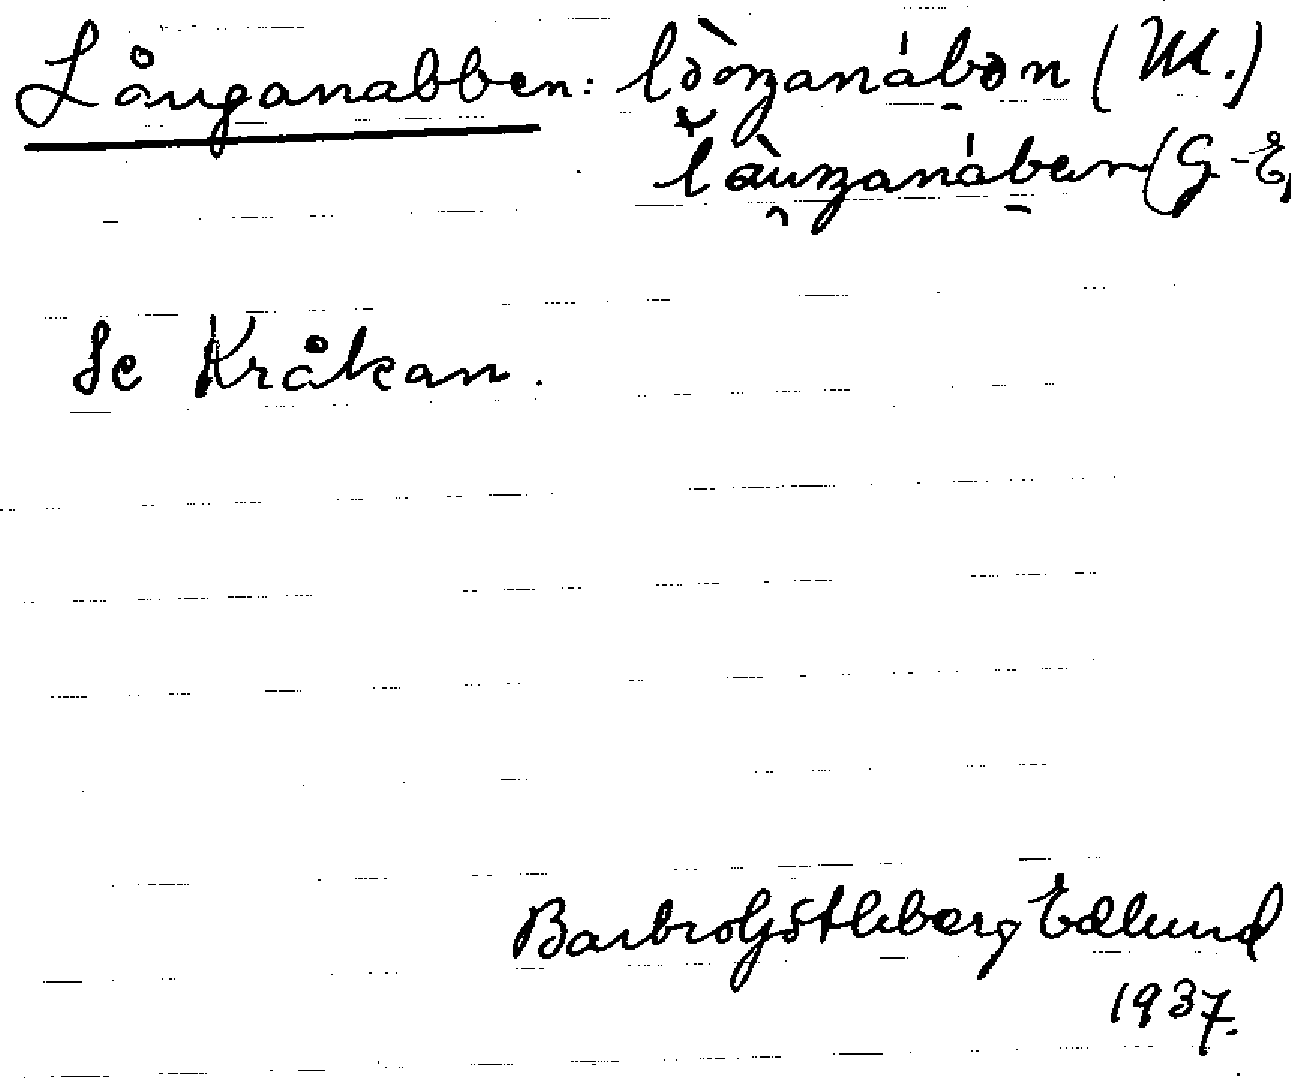 Långanabben: lòɔŋanábən (M.)
làuŋanáben (G.-E.
Se Kråkan.
Barbro Göthberg Edlund
1937.